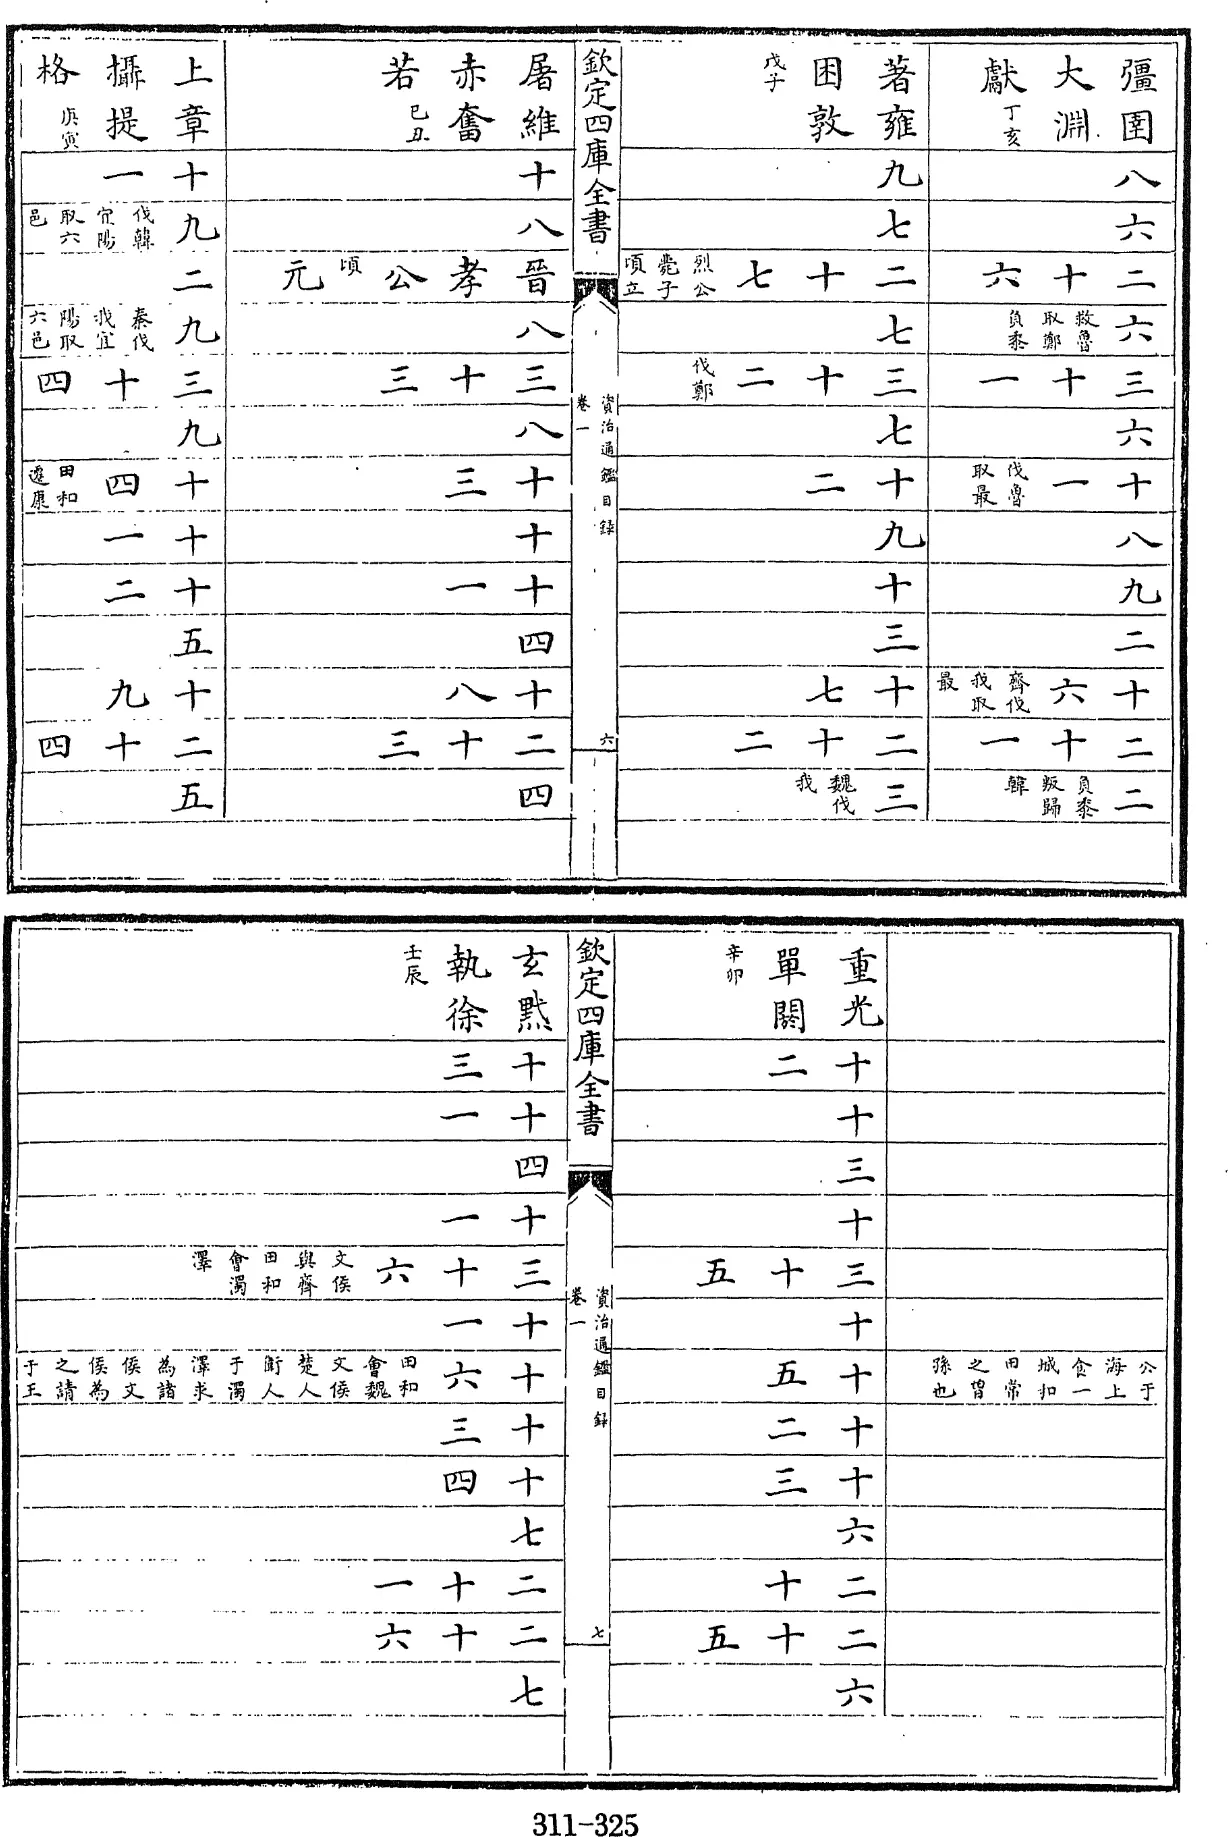 彊圉大淵獻丁亥
八
六
二十六
六救魯取鄭負黍
三十一
六
十一伐魯取最
八
九
二
十六齊伐我取最
二十一
二負黍叛歸韓
著雍困敦戊子
九
七
二十七烈公薨子頃立
七
三十二伐鄭
七
十二
九
十
三
十七
二十二
三魏伐我
欽定四庫全書
資治通鑑目録
卷一
六
屠維赤奮若己丑
十
八
晉孝公頃元
八
三十三
八
十三
十
十一
四
十八
二十三
四
上章攝提格庚寅
十一
九伐韓宜陽取六邑
二
九秦伐我宜陽取六邑
三十四
九
十四田和遷康
十一
十二
五
十九
二十四
五
公于海上食一城扣田常之曾孫也
重光單閼辛卯
十二
十
三
十
三十五
十
十五
十二
十三
六
二十
二十五
六
欽定四庫全書
資治通鑑目録
卷一
七
玄黓執徐壬辰
十三
十一
四
十一
三十六文侯與齊田和會濁澤
十一
十六田和會魏文侯楚人衛人于濁澤求為諸侯文侯為之請于王
十三
十四
七
二十一
二十六
七
311-325